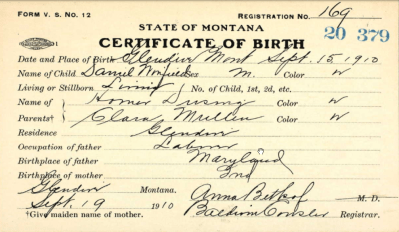 FORM V. S. No. 12 REGISTRATION No. 169
STATE OF MONTANA 20 379
CERTIFICATE OF BIRTH
Date and Place of Birth Glendive Mont Sept. 15, 1910
Name of Child Sex M. Color W
Living or Stillborn Living No. of Child, 1st, 2d, etc.
Name of Homer Color W
Parents† Clara Mullen Color W
Residence Glendive
Occupation of father Laborer
Birthplace of father Maryland
Birthplace of mother Ind
Glendive Montana. Anna M. D.
Sept. 19 1910 Registrar.
†Give maiden name of mother.